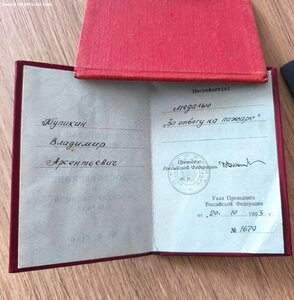 Купикин
Владимир
Арсентьевич
Награжден(а)
медалью
„За отвагу на пожаре"
Президент
Российской Федерации
М. П.
Указ Президента
Российской Федерации
от „20" 10 1993 г.
№ 1670